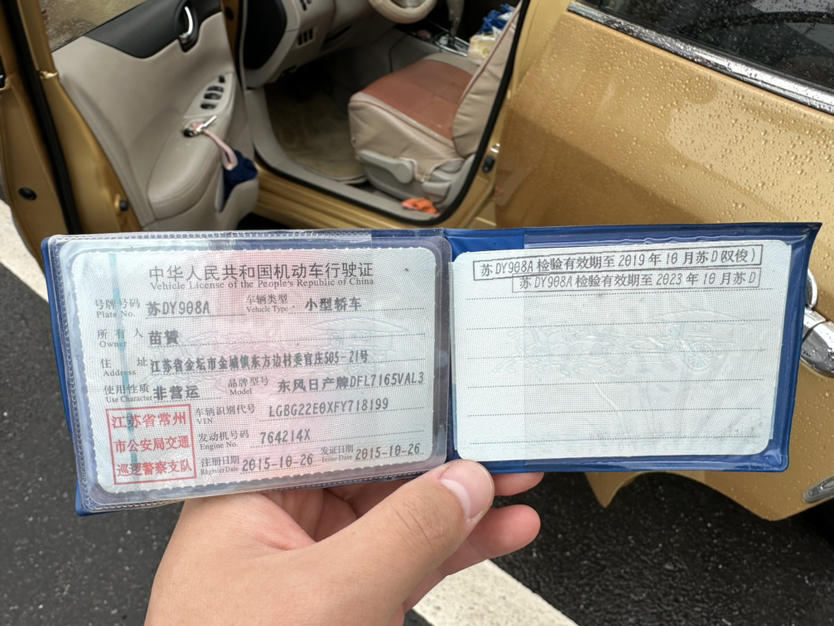 中华人民共和国机动车行驶证
Vehicle License of the People's Republic of China
号牌号码 苏DY908A 车辆类型 小型轿车
Plate No. Vehicle Type
所有人 苗赟
Owner
住址 江苏省金坛市金城镇东方边村委官庄505-21号
Address
使用性质 非营运 品牌型号 东风日产牌DFL7165VAL3
Use Character Model
江苏省常州
市公安局交通
巡逻警察支队
车辆识别代号 LGBG22E0XFY718199
VIN
发动机号码 764214X
Engine No.
注册日期 2015-10-26 发证日期 2015-10-26
Register Date Issue Date
苏DY908A检验有效期至2019年10月苏D(驭俊)
苏DY908A检验有效期至2023年10月苏D